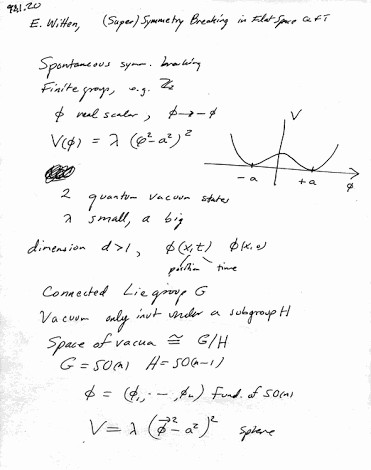 981.20
E. Witten, (Super) Symmetry Breaking in Flat Space QFT
Spontaneous symm. breaking
Finite group, e.g. ℤ₂
φ real scalar, φ → -φ
V(φ) = λ (φ²-a²)²
V
-a +a φ
2 quantum vacuum states
λ small, a big
dimension d>1, φ(x,t) φ(x,0)
position time
Connected Lie group G
Vacuum only invt under a subgroup H
Space of vacua ≅ G/H
G = SO(n) H = SO(n-1)
φ = (φ₁, ---, φₙ) Fund. of SO(n)
V = λ (φ⃗² - a²)² Sphere